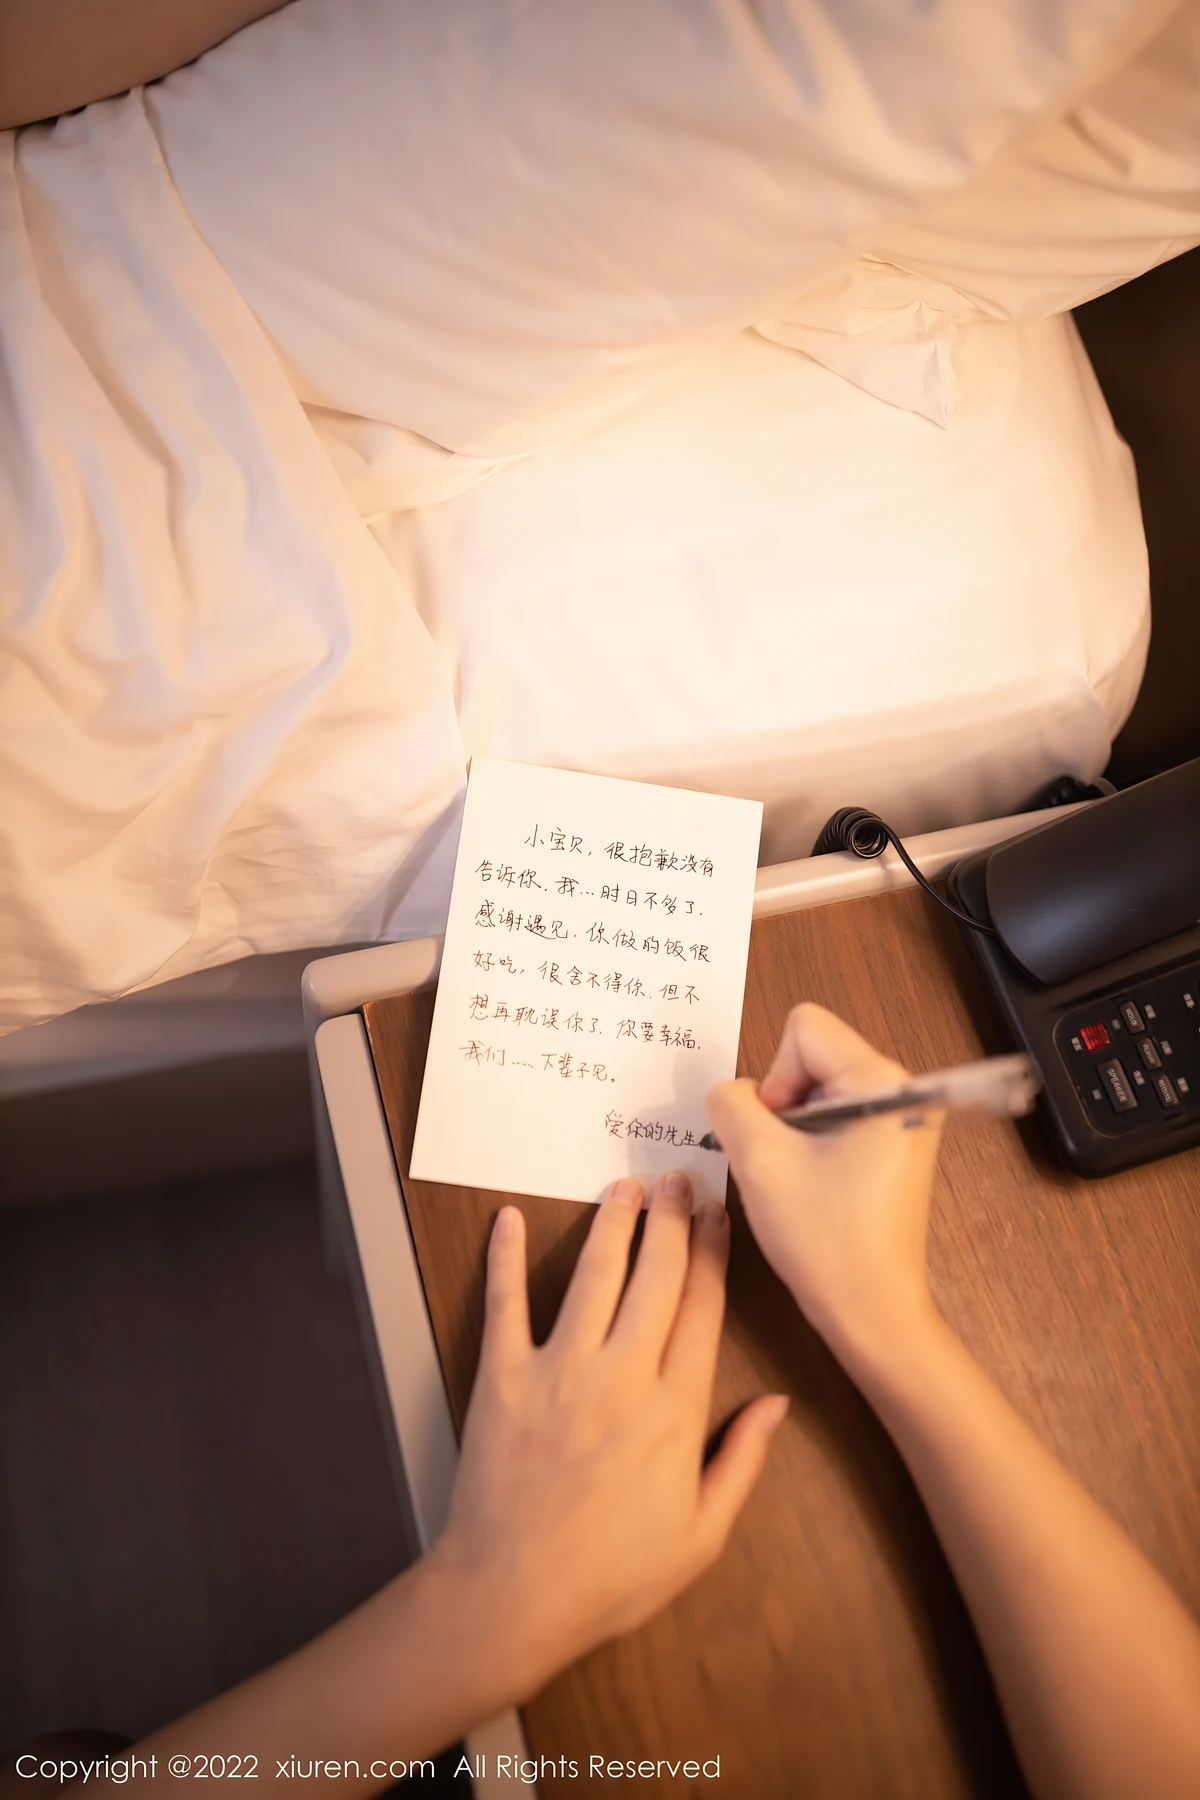 小宝贝，很抱歉没有
告诉你，我…时日不多了.
感谢遇见.你做的饭很
好吃，很舍不得你.但不
想再耽误你了.你要幸福.
我们……下辈子见。
爱你的先生
SPEAKER
Copyright @2022 xiuren.com All Rights Reserved